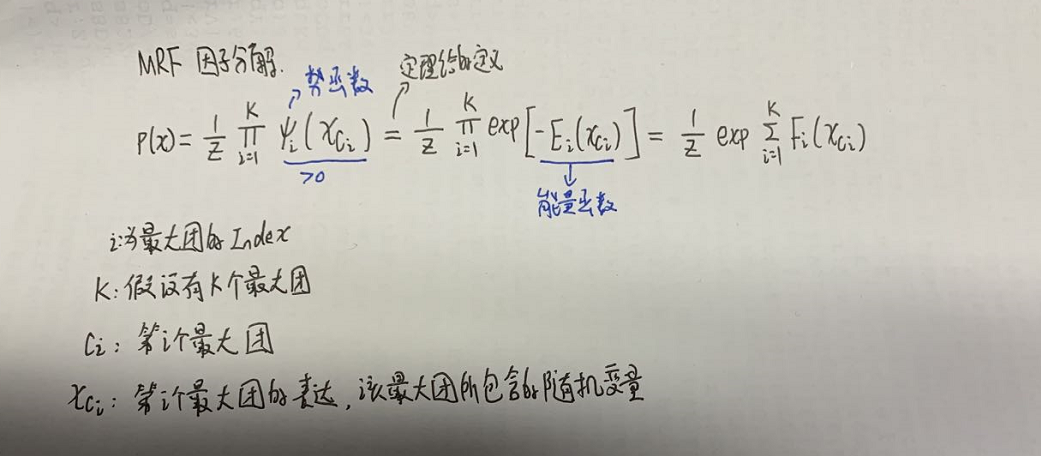 MRF 因子分解.
势函数 定理给的定义
P(x) = 1/Z ∏_{i=1}^{K} ψ_i(x_{C_i}) = 1/Z ∏_{i=1}^{K} exp[-E_i(x_{C_i})] = 1/Z exp ∑_{i=1}^{K} F_i(x_{C_i})
>0
能量函数
i:为最大团的Index
K:假设有K个最大团
C_i:第i个最大团
x_{C_i}:第i个最大团的表达,该最大团所包含的随机变量